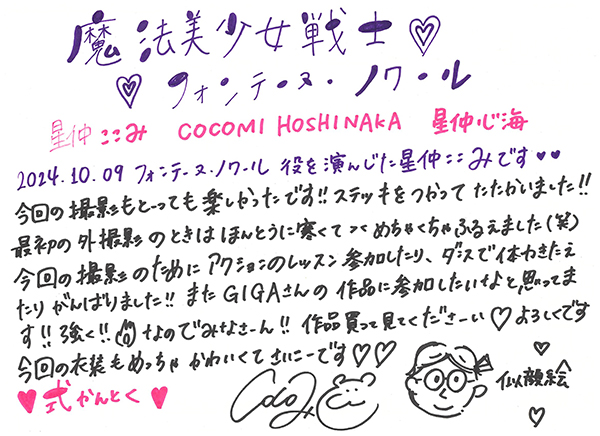 魔法美少女戦士♡
♡フォンテーヌ・ノワール
星仲ここみ COCOMI HOSHINAKA 星仲心海
2024.10.09 フォンテーヌ・ノワール 役を演んじた星仲ここみです♥♥
今回の撮影もとーっても楽しかったです!!ステッキをつかってたたかいました!!
最初の外撮影のときはほんとうに寒くて めちゃくちゃふるえました(笑)
今回の撮影のためにアクションのレッスン参加したり、ダンスで体力きたえ
たりがんばりました!!またGIGAさんの作品に参加したいなと思ってま
す!!強く!!なのでみなさーん!!作品買って見てくださーい♡よろしくです
今回の衣装もめっちゃかわいくてさいこーです♡♡
♥式かんとく♥
似顔絵